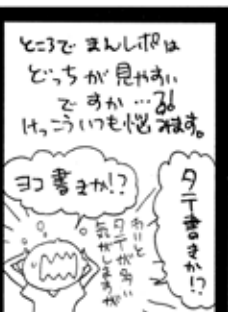 ところで まんレポは
どっちが 見やすい
ですか…
けっこういつも悩みます。
タテ書きか!?
ヨコ書きか!?
わりと
タテが多い
気がしますが